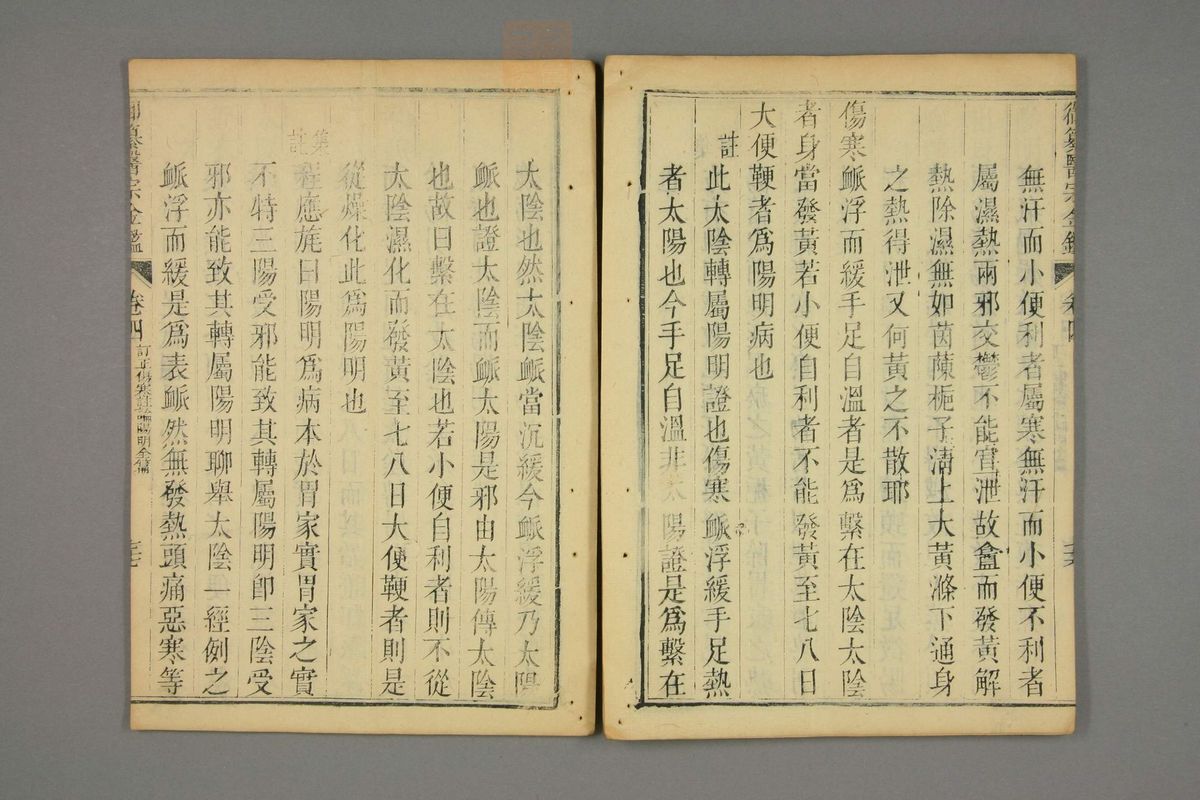 御纂醫宗金鑑 卷四
無汗而小便利者屬寒無汗而小便不利者
屬濕熱兩邪交鬱不能宣泄故盦而發黃解
熱除濕無如茵蔯梔子清上大黃滌下通身
之熱得泄又何黃之不散耶
傷寒脈浮而緩手足自溫者是爲繫在太陰太陰
者身當發黃若小便自利者不能發黃至七八日
大便鞕者爲陽明病也
註
此太陰轉屬陽明證也傷寒脈浮緩手足熱
者太陽也今手足自溫非太陽證是爲繫在
太陰也然太陰脈當沉緩今脈浮緩乃太陽
脈也證太陰而脈太陽是邪由太陽傳太陰
也故曰繫在太陰也若小便自利者則不從
太陰濕化而發黃至七八日大便鞕者則是
從燥化此爲陽明也
集註
程應旄曰陽明爲病本於胃家實胃家之實
不特三陽受邪能致其轉屬陽明卽三陰受
邪亦能致其轉屬陽明聊舉太陰一經例之
脈浮而緩是爲表脈然無發熱頭痛惡寒等
御纂醫宗金鑑 卷四 訂正傷寒註論陽明全篇